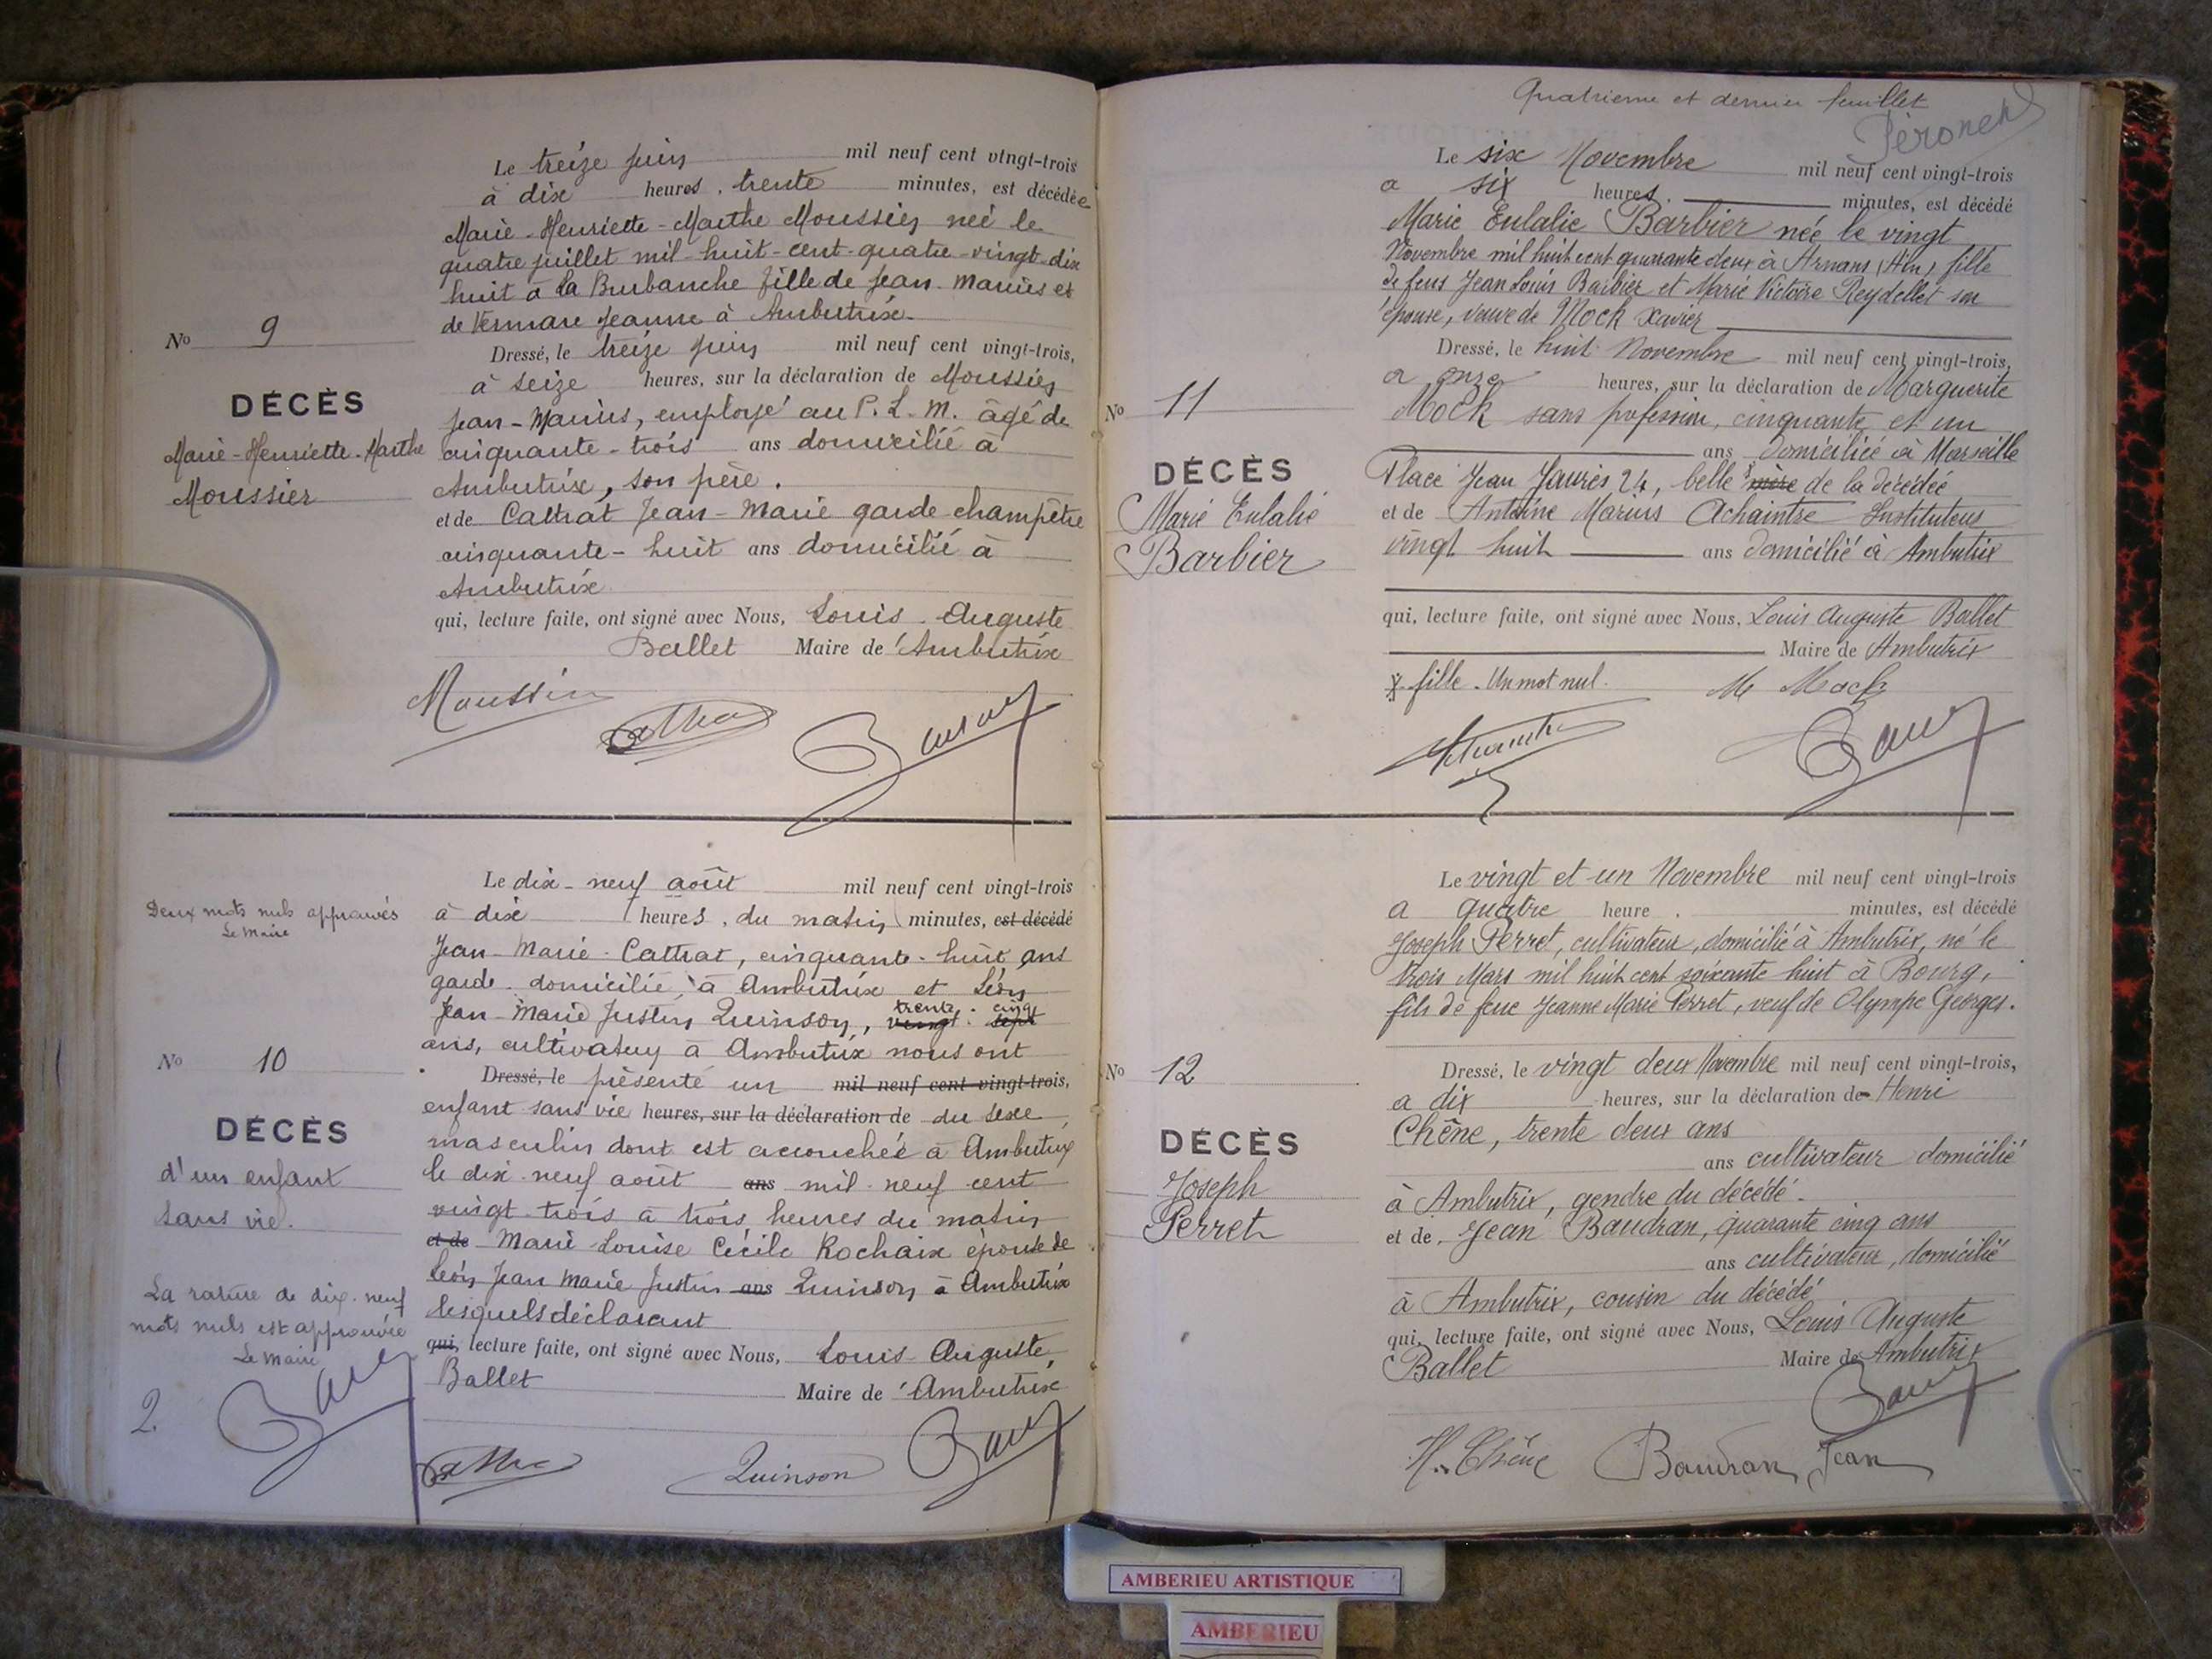 Le treize juin mil neuf cent vingt-trois
à dix heures, trente minutes, est décédée
Marie-Henriette-Marthe Moussier née le
quatre juillet mil-huit-cent-quatre-vingt-dix
huit à la Burbanche fille de Jean-Marius et
de Vermare Jeanne à Ambutrix.
No 9
DÉCÈS
Marie-Henriette-Marthe
Moussier
Dressé, le treize juin mil neuf cent vingt-trois,
à seize heures, sur la déclaration de Moussier
Jean-Marius, employé au P. L. M. âgé de
cinquante-trois ans domicilié à
Ambutrix, son père.
et de Cattrat Jean-Marie garde champêtre
cinquante-huit ans domicilié à
Ambutrix
qui, lecture faite, ont signé avec Nous, Louis-Auguste
Ballet Maire de Ambutrix
Moussier
Le dix-neuf août mil neuf cent vingt-trois
à dix heures, du matin minutes, est décédé
Jean-Marie-Cattrat, cinquante-huit ans
garde domicilié à Ambutrix et Léon
Jean-Marie Justin Quinson, vingt-sept
trente cinq
ans, cultivateur à Ambutrix nous ont
Dressé, le présenté un mil neuf cent vingt-trois,
enfant sans vie heures, sur la déclaration de du sexe
masculin dont est accouchée à Ambutrix
le dix-neuf août ans mil-neuf cent
vingt-trois à trois heures du matin
et de Marie-Louise Cécile Rochaix épouse de
Léon Jean Marie Justin ans Quinson à Ambutrix
lesquels déclarant
qui, lecture faite, ont signé avec Nous, Louis-Auguste
Ballet Maire de Ambutrix
Deux mots nuls approuvés
Le Maire
No 10
DÉCÈS
d'un enfant
sans vie.
La rature de dix-neuf
mots nuls est approuvée
Le Maire
2.
Quinson
Quatrième et dernier feuillet
Le six Novembre mil neuf cent vingt-trois
a six heures, minutes, est décédé
Marie Eulalie Barbier née le vingt
Novembre mil huit cent quarante deux à Arnans (Ain) fille
de feus Jean Louis Barbier et Marie Victoire Reydellet son
épouse, veuve de Mock Xavier
No 11
DÉCÈS
Marie Eulalie
Barbier
Dressé, le huit Novembre mil neuf cent vingt-trois,
a onze heures, sur la déclaration de Marguerite
Mock sans profession, cinquante et un
ans domiciliée à Marseille
Place Jean Jaurès 24, belle mère de la décédée
et de Antoine Marius Achaintre Instituteur
vingt huit ans domicilié à Ambutrix
qui, lecture faite, ont signé avec Nous, Louis Auguste Ballet
Maire de Ambutrix
x fille. Un mot nul.
M Mock
Le vingt et un Novembre mil neuf cent vingt-trois
a quatre heure, minutes, est décédé
Joseph Perret, cultivateur, domicilié à Ambutrix, né le
trois Mars mil huit cent soixante huit à Bourg,
fils de feue Jeanne Marie Perret, veuf de Olympe Georges.
No 12
DÉCÈS
Joseph
Perret
Dressé, le vingt deux Novembre mil neuf cent vingt-trois,
a dix heures, sur la déclaration de Henri
Chêne, trente deux ans
ans cultivateur domicilié
à Ambutrix, gendre du décédé.
et de Jean Baudran, quarante cinq ans
ans cultivateur, domicilié
à Ambutrix, cousin du décédé
qui, lecture faite, ont signé avec Nous, Louis Auguste
Ballet Maire de Ambutrix
H. Chêne Baudran Jean
AMBERIEU ARTISTIQUE
AMBERIEU